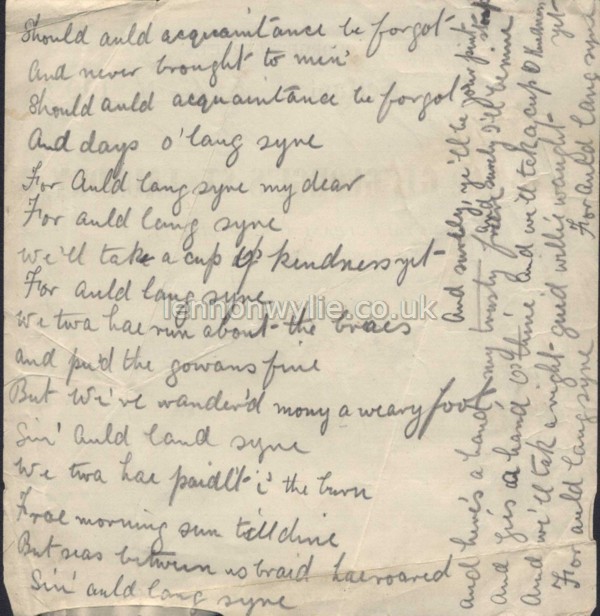 Should auld acquaintance be forgot
And never brought to min'
Should auld acquaintance be forgot
And days o' lang syne
For Auld lang syne my dear
For auld lang syne
We'll take a cup o' kindness yet
For auld lang syne
We twa hae run about the braes
and pu'd the gowans fine
But We've wander'd mony a weary foot
Sin' auld land syne
We twa hae paidl't i' the burn
Frae morning sun till dine
But seas between us braid hae roared
Sin' auld lang syne
and here's a hand, my trusty friend
And gie's a hand o' thine
And we'll tak a right guid willie waught
For auld lang syne
And surely, ye'll be your pint-stoup
And surely I'll be mine
and we'll tak a cup o kindness yet
For auld lang syne
lennonwylie.co.uk